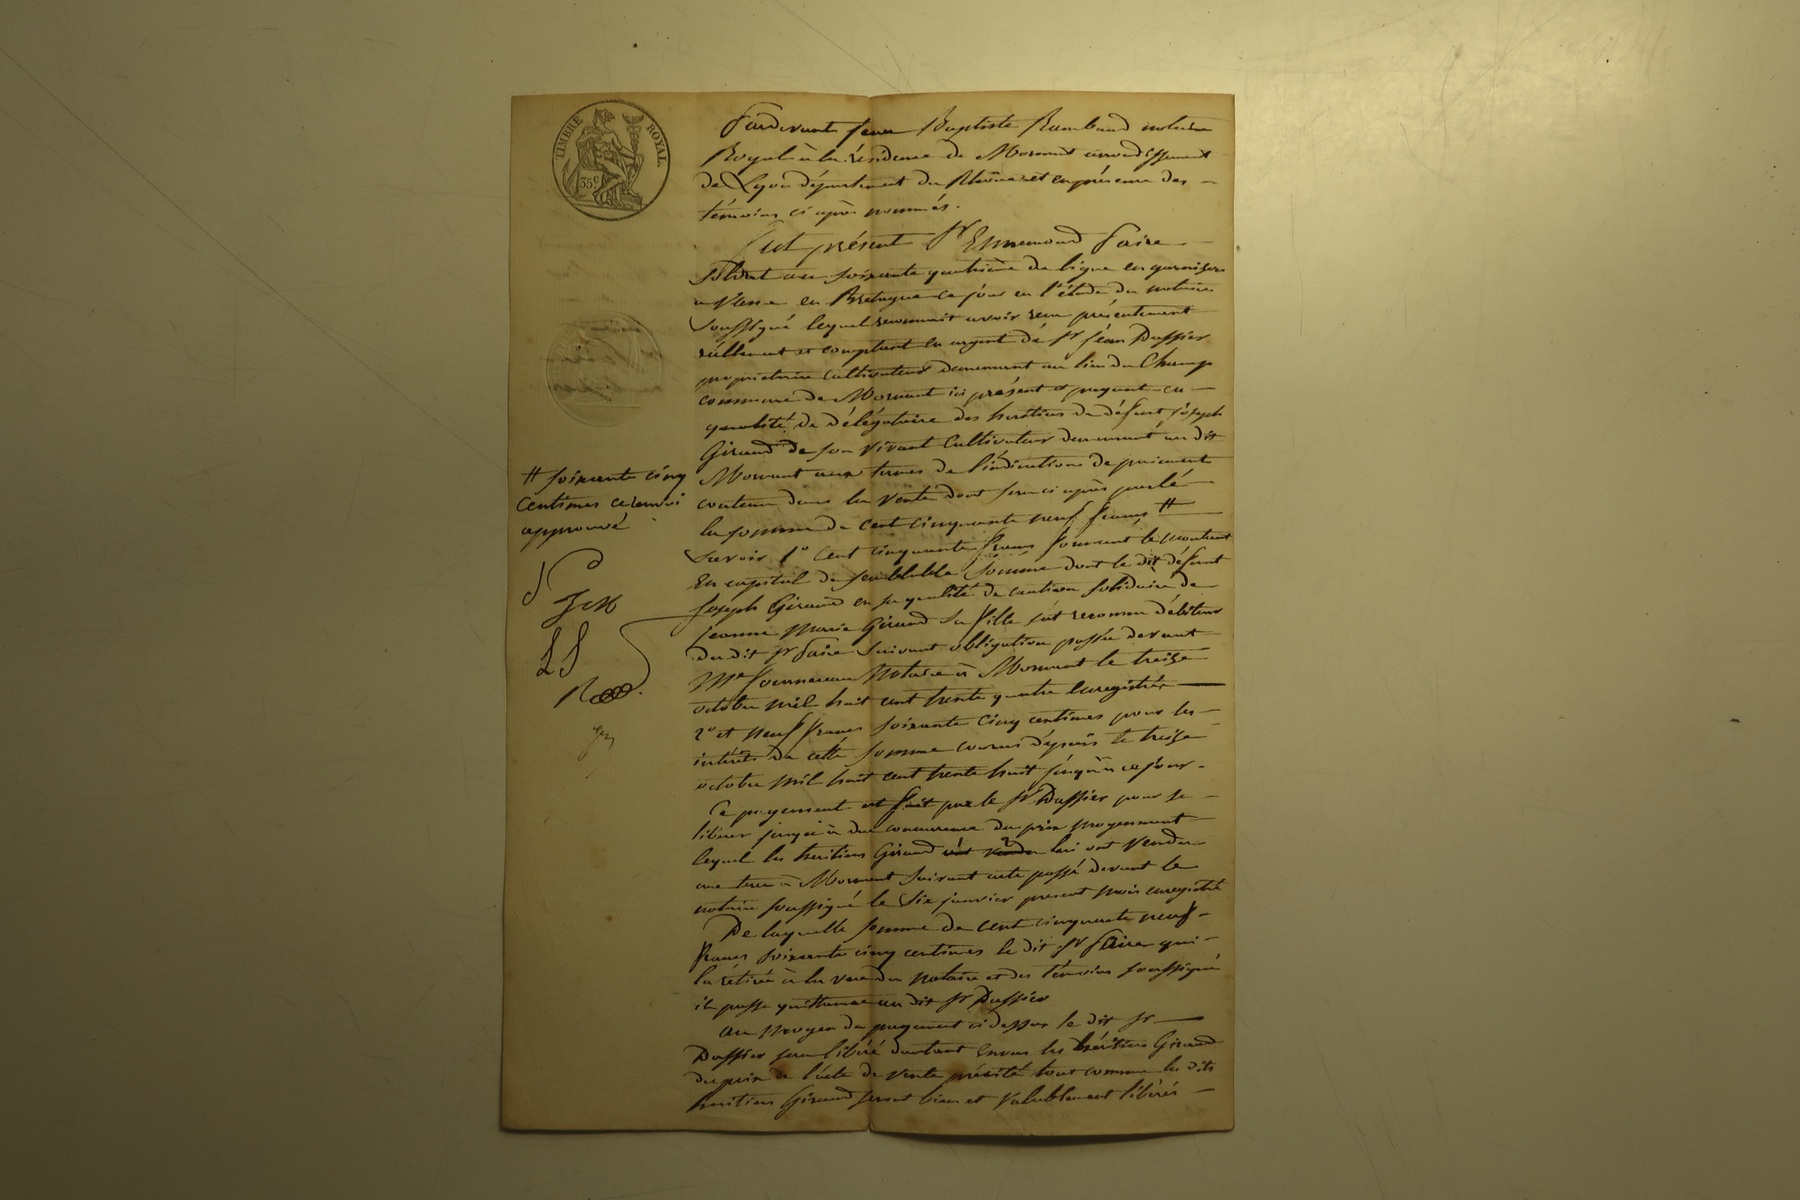 TIMBRE ROYAL
35c
Pardevant Jean Baptiste Rambaud notaire
Royal à la résidence de Mornant arrondissement
de Lyon département du Rhône et en présence des
témoins ci après nommés.
Est présent Sr Ennemond Faire
Soldat au soixante quatrième de ligne en garnison
a Vanne en Bretagne ce jour en l'étude du notaire
soussigné lequel reconnait avoir reçu présentement
réellement et comptant en argent de Sr Jean Dussier
propriétaire cultivateur demeurant au lieu du Champ
commune de Mornant ici présent et payant en
qualité de délégataire des heritiers de défunt Joseph
Giraud de son vivant Cultivateur demeurant au dit
Mornant aux termes de l'indication de paiement
contenu dans la vente dont sera ci après parlé
la somme de cent cinquante neuf francs #
# soixante cinq
centimes ce renvoi
approuvé
Savoir 1o cent cinquante francs formant le montant
en capital de semblable somme dont le dit défunt
Joseph Giraud en sa qualité de caution solidaire de
Jeanne Marie Giraud sa fille s'est reconnu débiteur
du dit Sr Faire suivant obligation passée devant
Me notaire à Mornant le treize
octobre mil huit cent trente quatre Enregistrée
2o et neuf francs soixante cinq centimes pour les
intérêts de cette somme courus depuis le treize
octobre mil huit cent trente huit jusqu'à ce jour.
Ce payement est fait par le Sr Dussier pour se
libérer jusqu'à due concurrence du prix moyennant
lequel les heritiers Giraud lui ont vendu
une terre à Mornant suivant acte passé devant le
notaire soussigné le six janvier present mois enregistré
De laquelle somme de cent cinquante neuf
francs soixante cinq centimes le dit Sr Faire qui
la retirée à la vue du notaire et des témoins soussignés
il passe quittance au dit Sr Dussier
au moyen du payement ci dessus le dit Sr
Dussier sera libéré d'autant envers les héritiers Giraud
du prix de l'acte de vente précité tout comme les dits
heritiers Giraud seront bien et valablement libérés